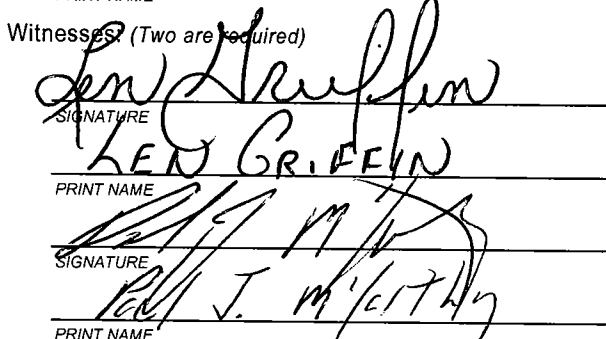 PRINT NAME
Witnesses: (Two are required)
Len Griffin
SIGNATURE
LEN GRIFFIN
PRINT NAME
Paul J. M
SIGNATURE
Paul J. McCarthy
PRINT NAME